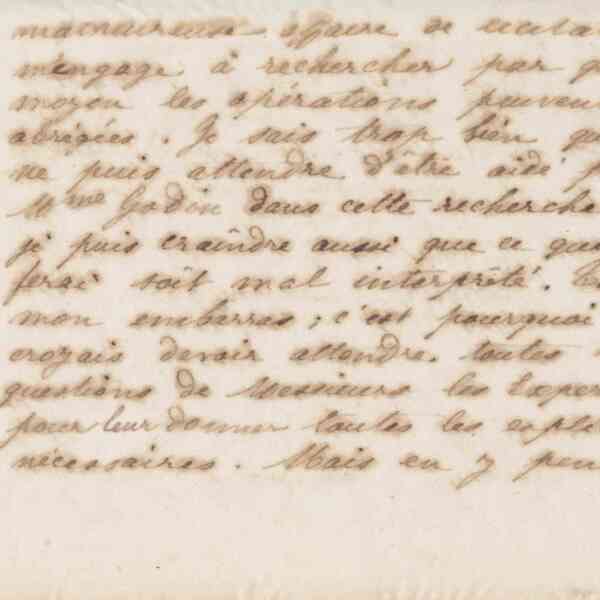 malheureuse affaire de
m'engage à rechercher par
moyen les opérations peuven
abrégées. Je sais trop bien qu
ne puis attendre d'être aidé p
Mme Godin dans cette recherche
je puis craindre aussi que ce que
ferai soit mal interprété.
mon embarras ; c'est pourquoi
croyais devoir attendre toutes
questions de Messieurs les Exper
pour leur donner toutes les expl
nécessaires. Mais en y pen